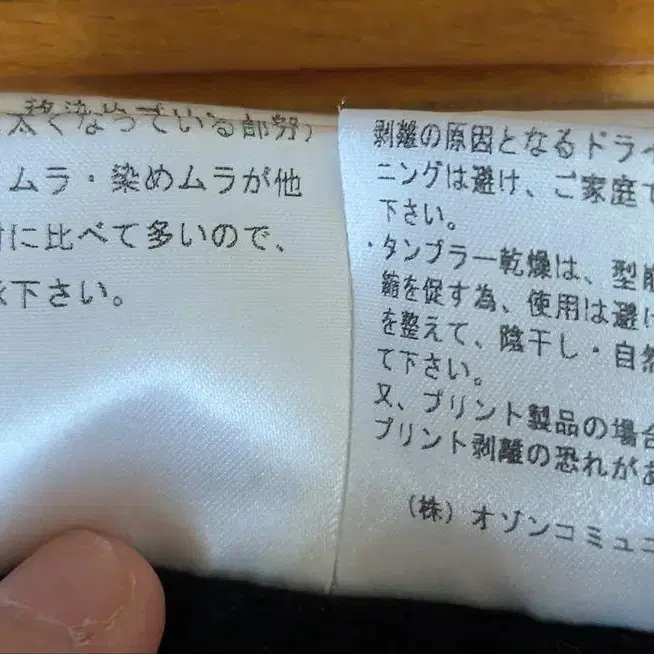 太くなっている部分)
ムラ・染めムラが他
に比べて多いので、
下さい。
剥離の原因となるドライ
ニングは避け、ご家庭で
下さい。
・タンブラー乾燥は、型崩
縮を促す為、使用は避け
を整えて、陰干し・自然
て下さい。
又、プリント製品の場合
プリント剥離の恐れがあ
(株)オゾンコミュニ